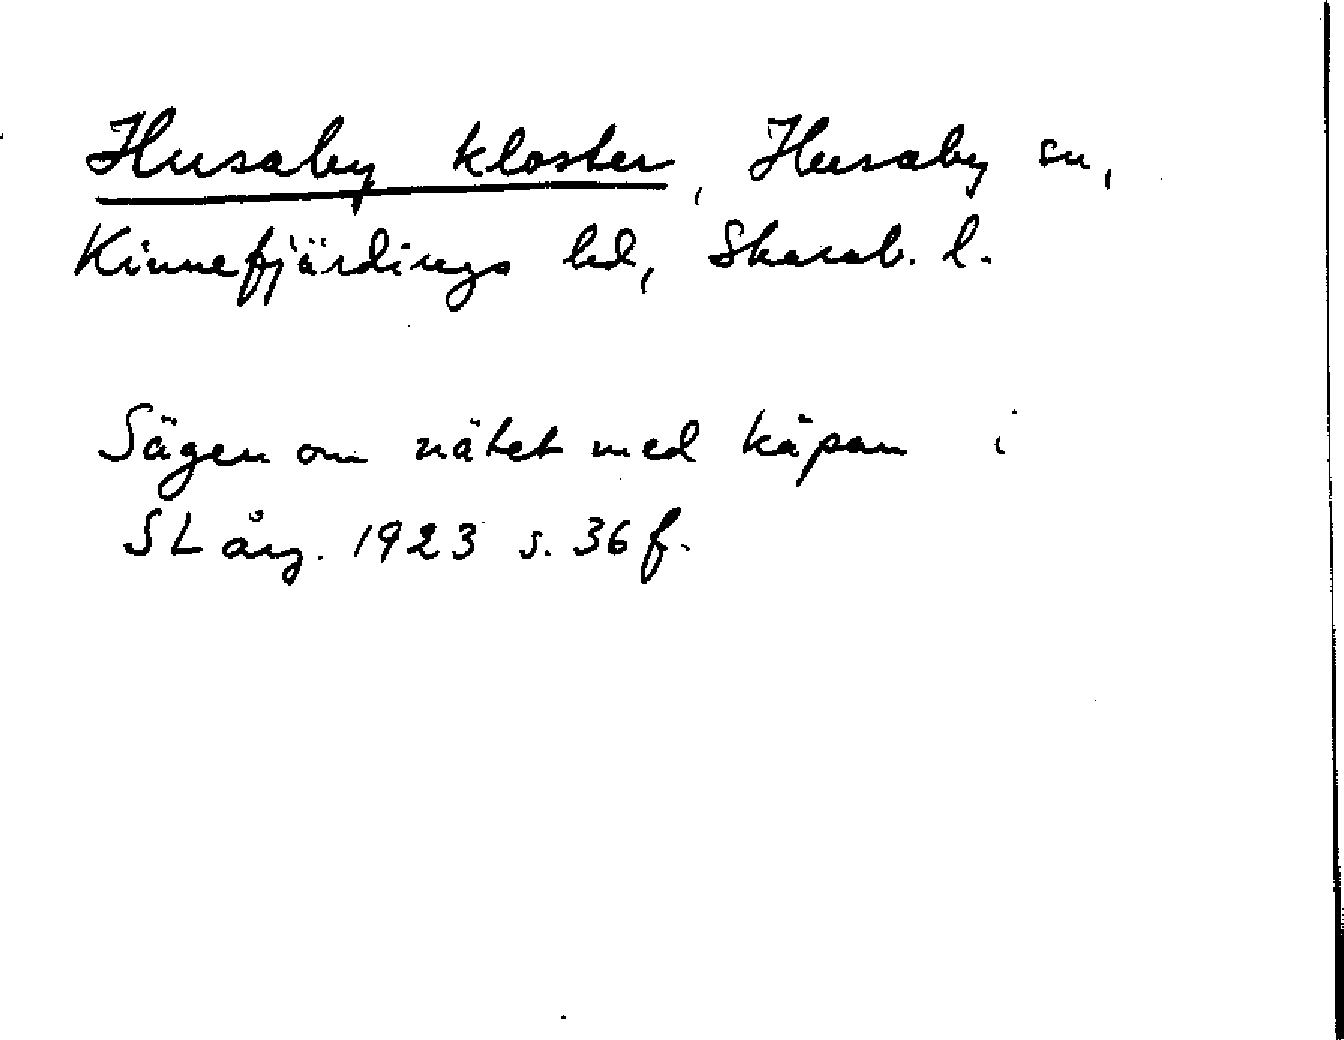 Husaby kloster, Husaby sn,
Kinnefjärdings hd, Skarab. l.
Sägen om nätet med kåpan i
SL årg. 1923 s. 36 f.